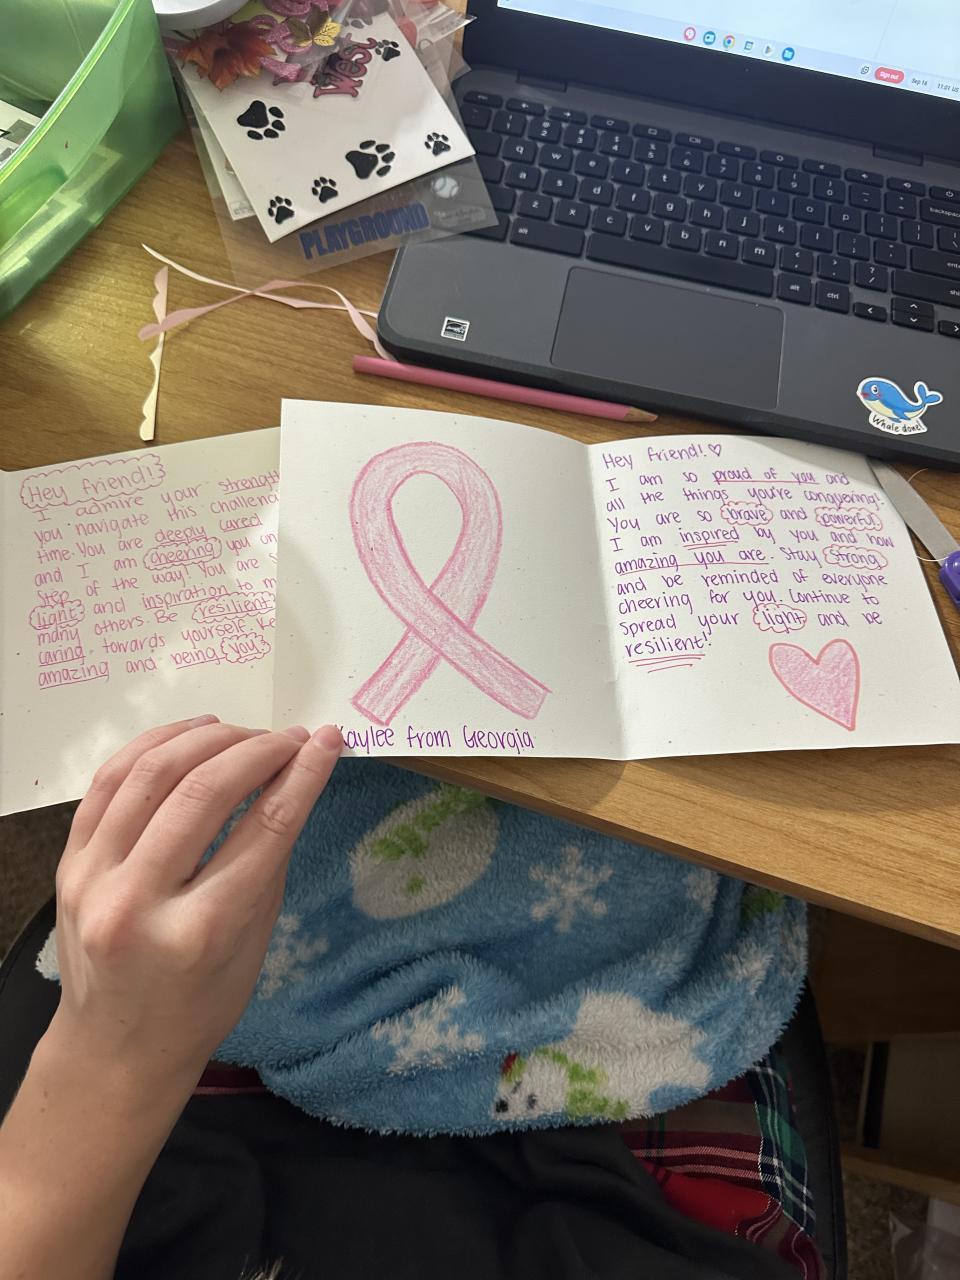 West
PLAYGROUND
Sign out
Sep 16
Whale done!
Hey friend!
I admire your strength
you navigate this
time. You are deeply cared
and I am cheering you on
step of the way! You are
light and inspiration to
many others. Be resilient
caring towards yourself.
amazing and being you.
Kaylee from Georgia
Hey friend! ♡
I am so proud of you and
all the things you're conquering!
You are so brave and powerful
I am inspired by you and how
amazing you are. Stay strong
and be reminded of everyone
cheering for you. Continue to
spread your light and be
resilient!